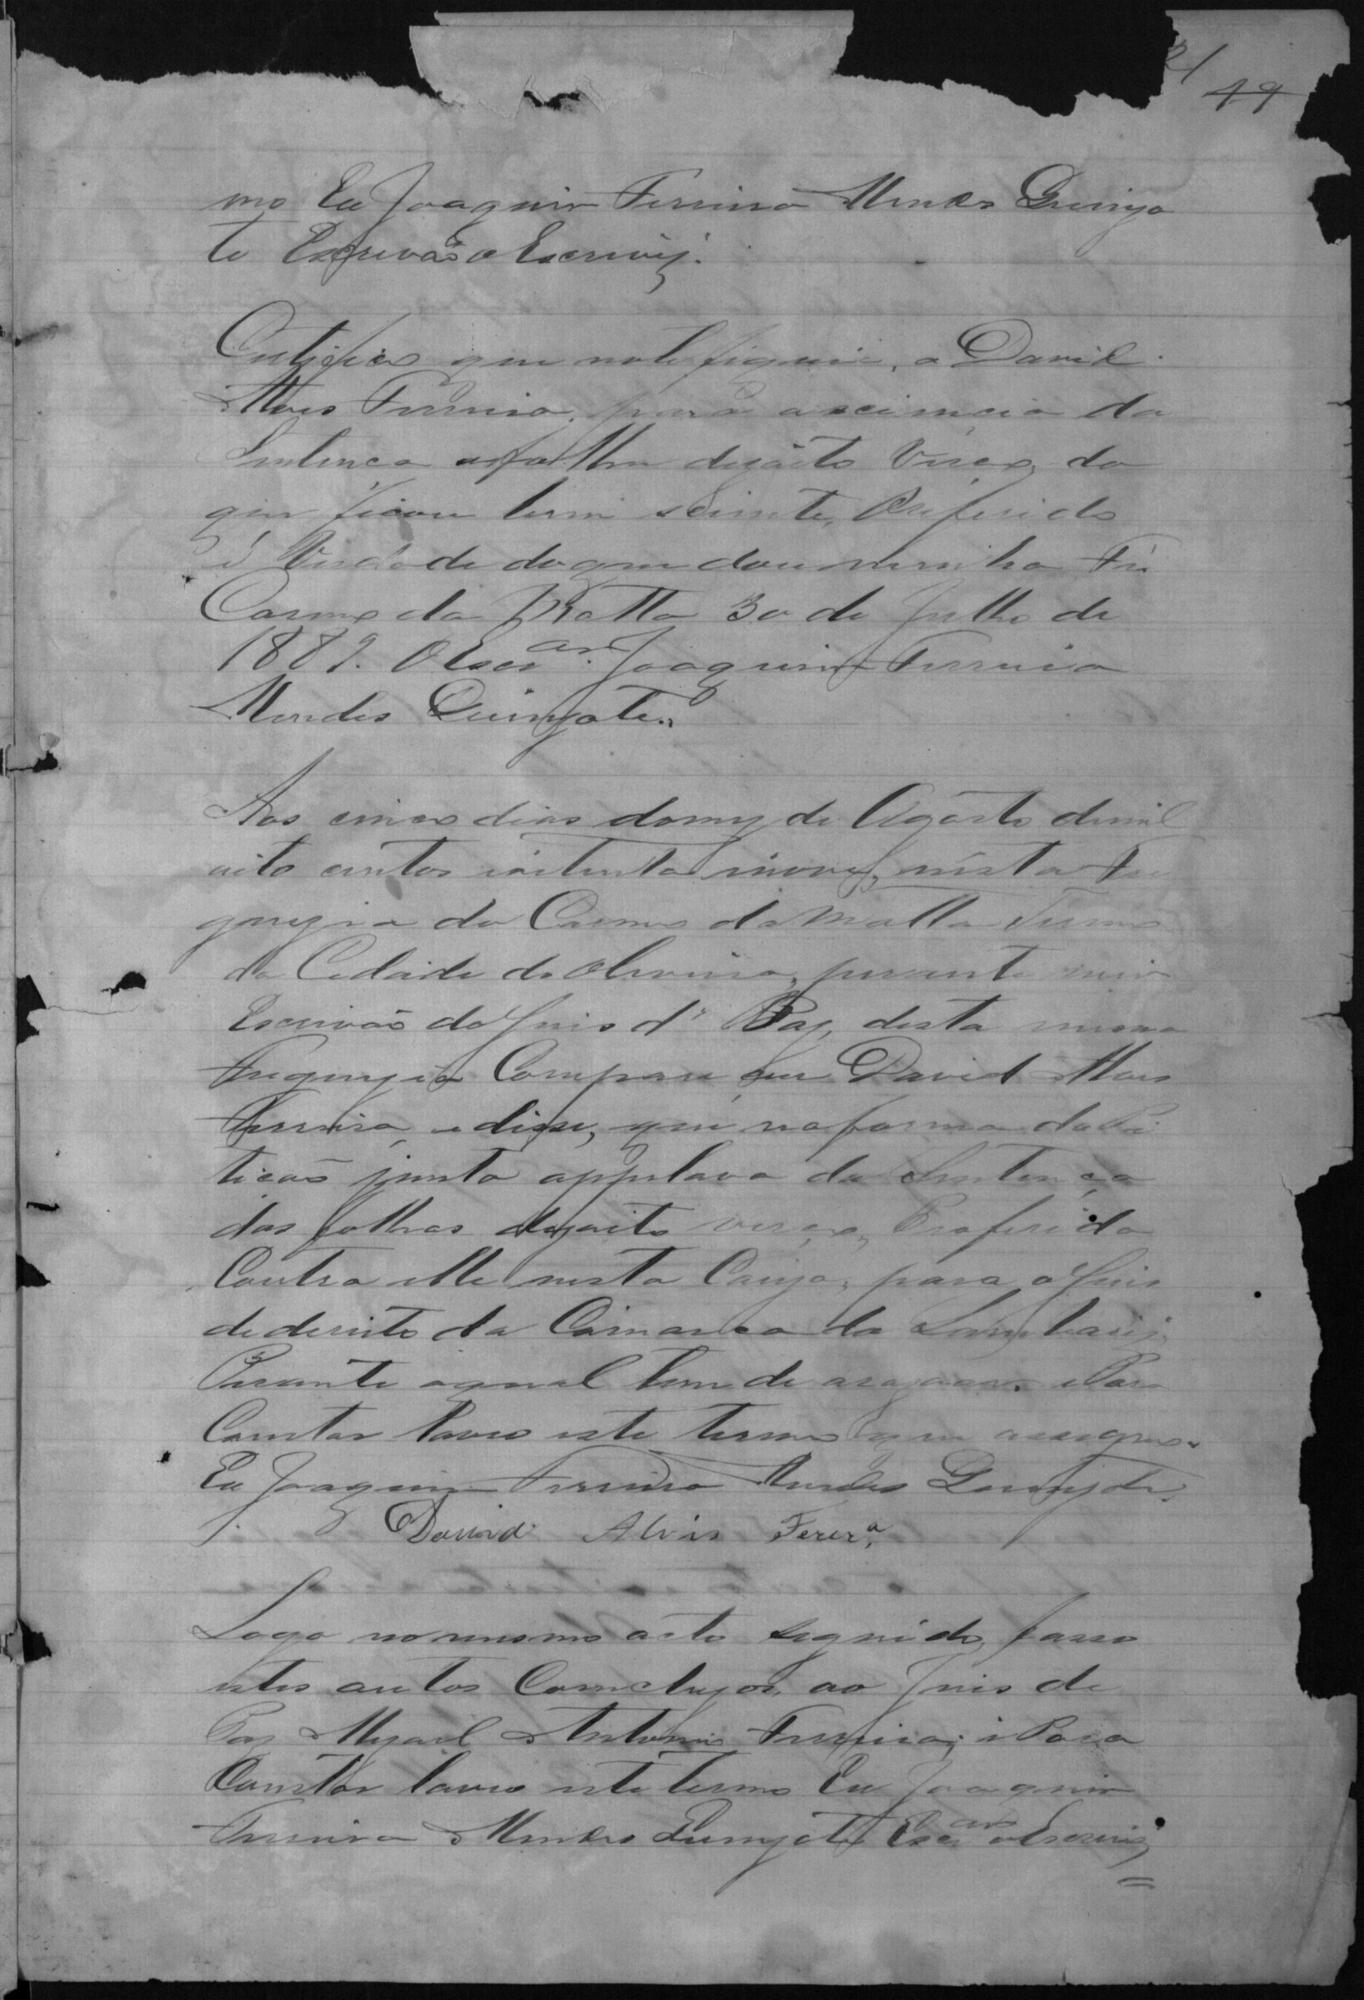 21
19
mo Eu Joaquim Ferreira Mendes Quinya
te Escrivão o Escrivij.
Certifico que notefiquei, a David
Alves Ferreira, para a sciencia da
Sentença a folhas desoito Verço, do
que ficou bem sciente, Oreferido
é Verdade do que dou minha Fé
Carmo da Matta 30 de Julho de
1889. O Escr.am Joaquim Ferreira
Mendes Quinyate.
Aos cinco dias do mez de Agosto de mil
oito centos oitenta nove, nesta Fre
guezia do Carmo da Matta Termo
da Cidade de Oliveira, perante mim
Escrivão do Juis d' Paz, desta mesma
Freguezia Compareceu David Alves
Ferreira, e disse, que na forma da Pi
ticão junta appelava da Sentença
das folhas dezoito verço, Proferida
Contra elle nesta Cauza, para o Juis
de dereito da Comarca do
Perante o qual tem de arazoar. e Para
Constar lavro este termo que assigno.
Eu Joaquim Ferreira Mendes Quinyate.
David Alvis Ferera,
Logo no mesmo acto seguido, fasso
estes autos Comcluzos, ao Juis de
Paz Antonio Ferreira; e Para
Constar lavro este termo Eu Joaquim
Ferreira Mendes Quinyate Escram o Escrivij